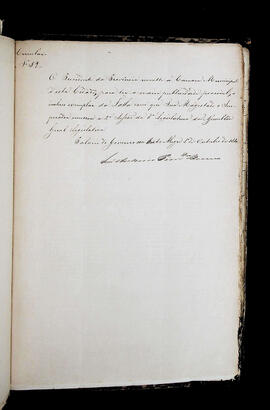 Circular
Nº 52
O Presidente da Provincia remette á Camara Municipal
desta Cidade, para ter a maior publicidade possivel, o
incluso exemplar da Falla com que Sua Magestade o Impe-
rador encerrou a 2ª Sessão da 8ª Legislatura da Assemblea
Geral Legislativa.
Palacio do Governo em Porto Alegre 1º de Outubro de